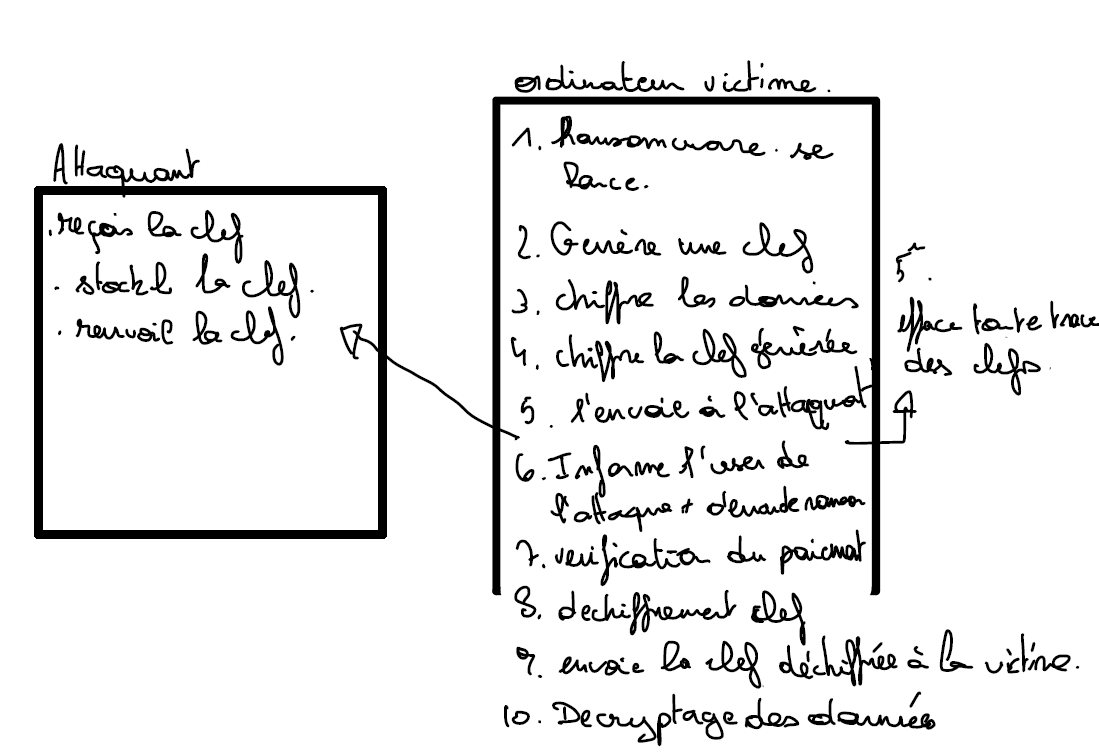 Attaquant
.reçois la clef
. stocke la clef.
. renvoie la clef.
ordinateur victime.
1. Ransomware se
lance.
2. Genère une clef
3. chiffre les données
4. chiffre la clef générée
5. l'envoie à l'attaquat
6. Informe l'user de
l'attaque + demande
7. verification du paiemat
8. dechiffrement clef
9. envoie la clef déchiffrée à la victime.
10. Decryptage des données
5.
efface toute trace
des clefs.